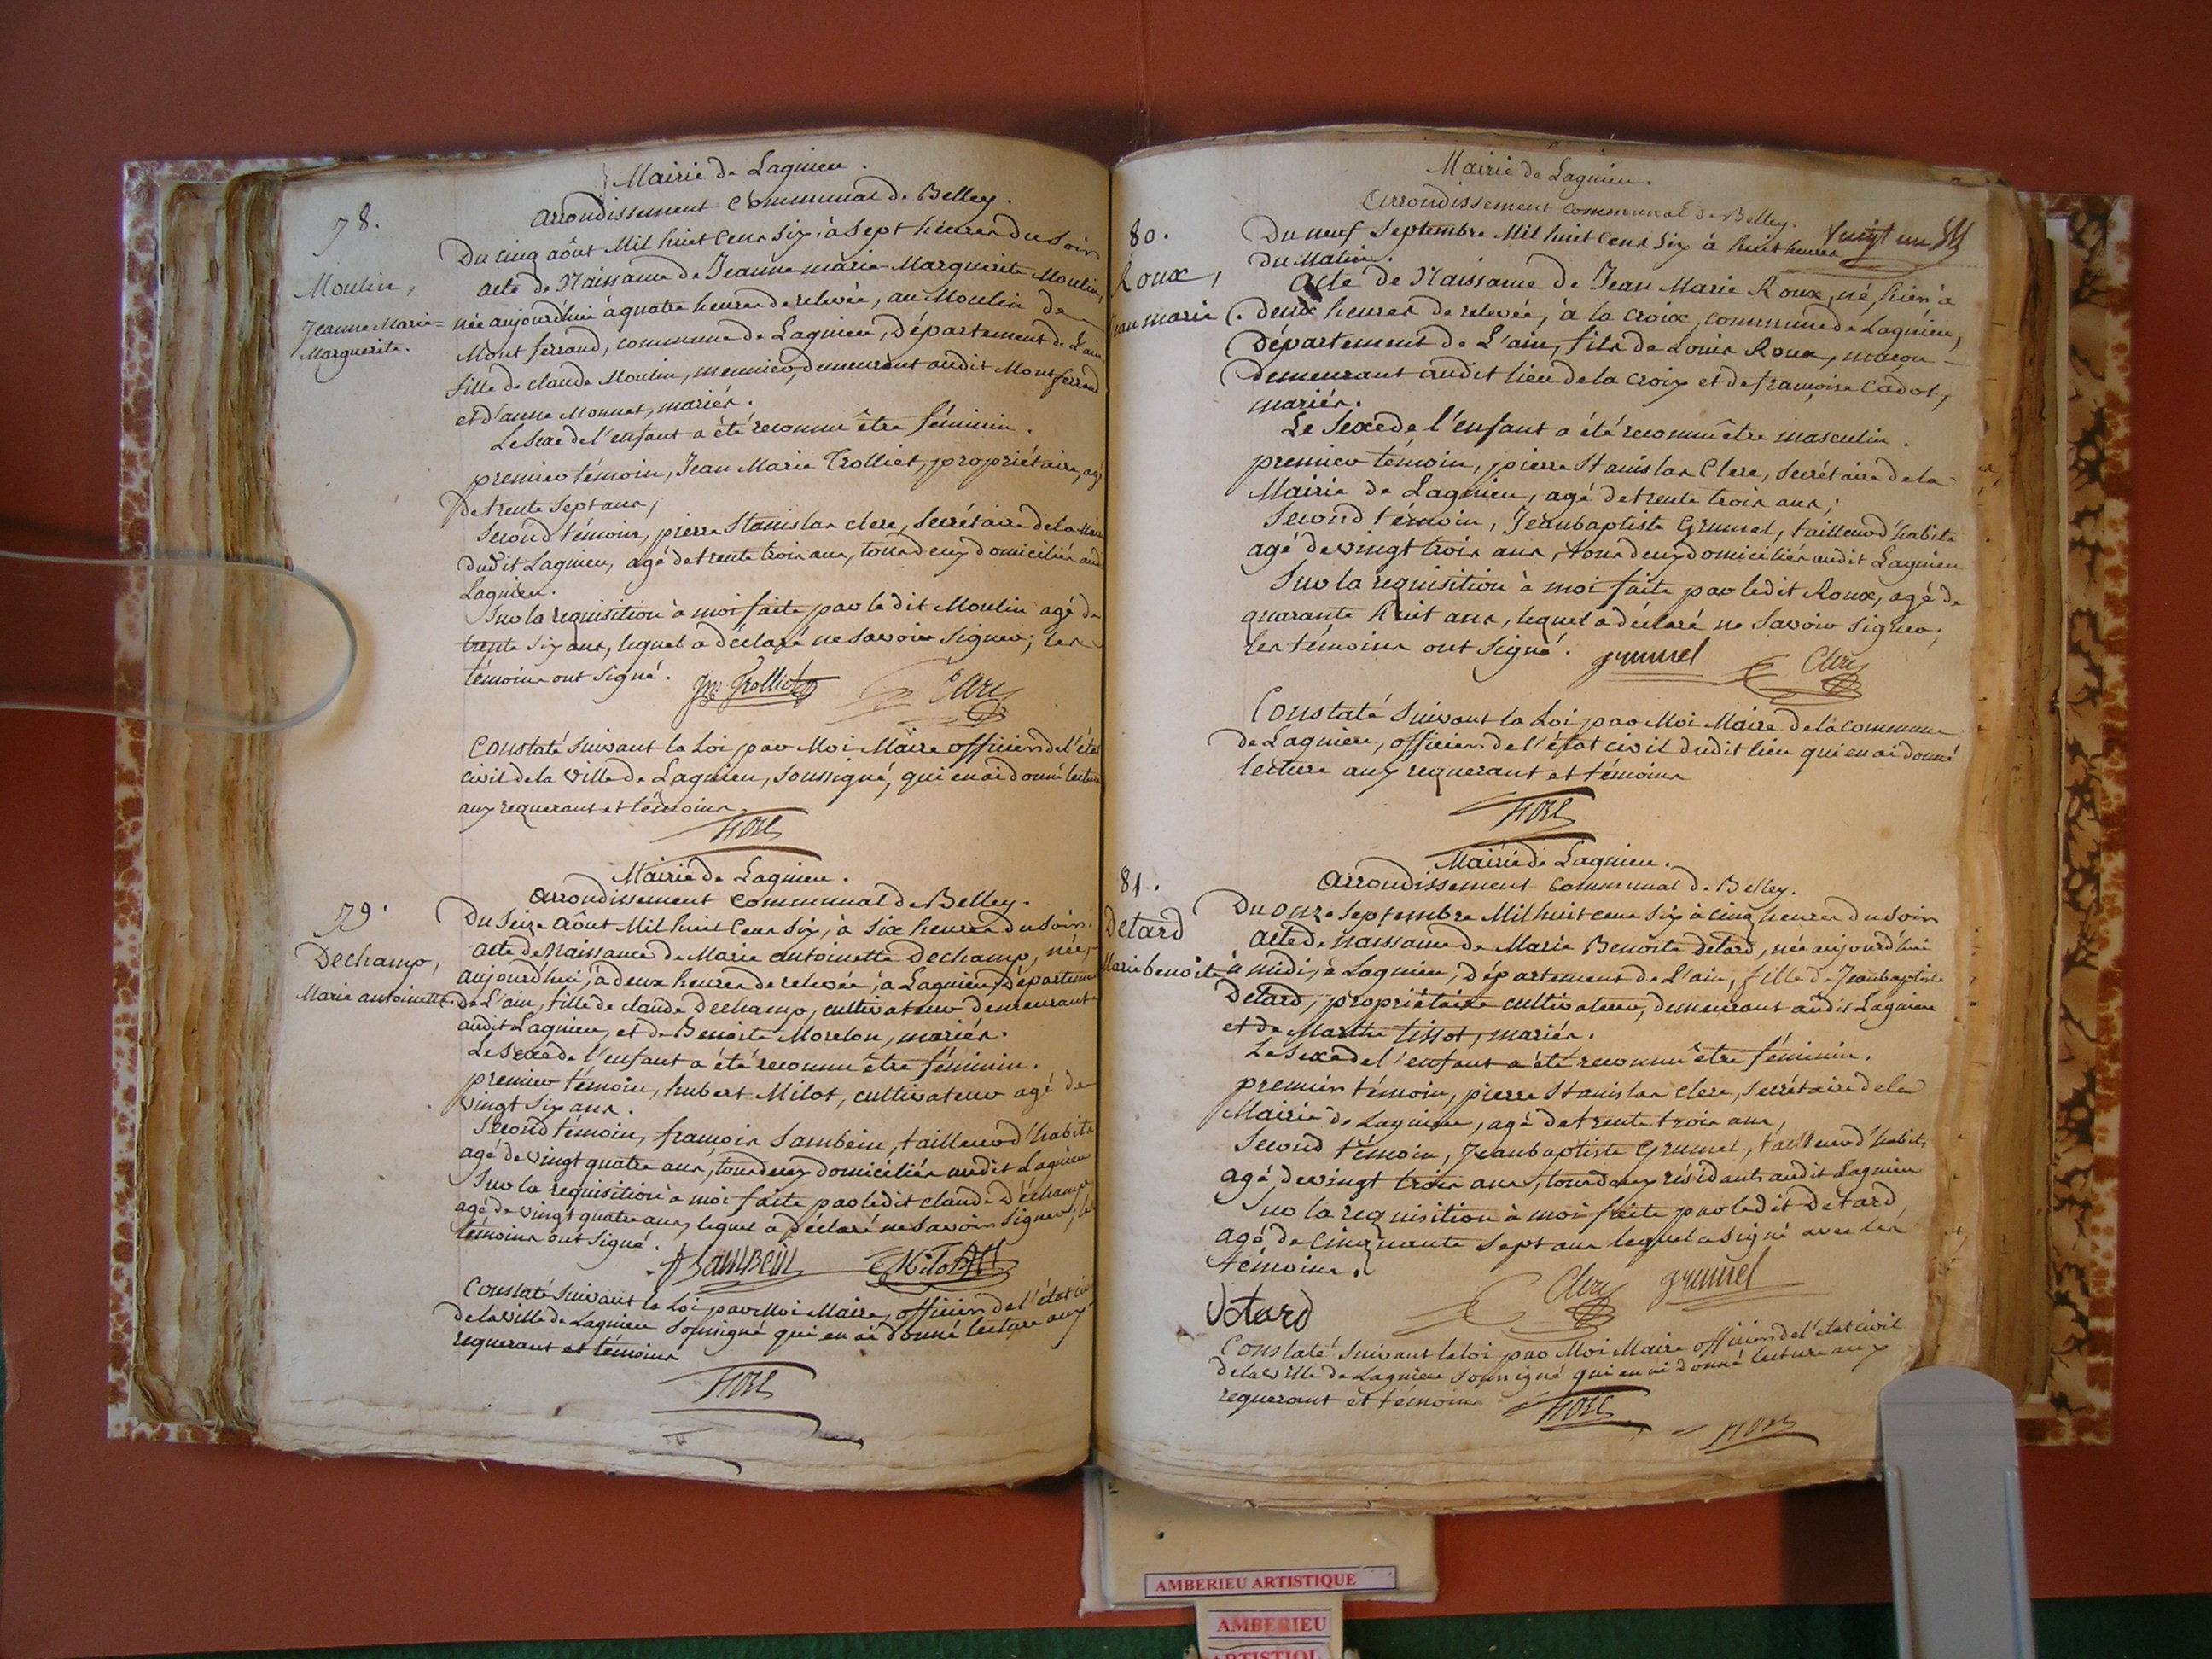 Mairie de Lagnieu.
arrondissement Communal de Belley.
78.
Du cinq août Mil huit Cent Six, à Sept heures du Soir
Moulin,
Jeanne Marie=
Marguerite.
acte de Naissance de Jeanne marie Marguerite Moulin,
née aujourd'hui à quatre heures de relevée, au Moulin de
Mont ferrand, commune de Lagnieu, Département de L'ain
fille de claude Moulin, meunier, demeurant audit Montferrand
et d'anne Monnet, mariés.
Le Sexe de l'enfant a été reconnu être féminin.
premier témoin, Jean Marie Trolliet, propriétaire, agé
de trente Sept ans,
Second témoin, pierre Stanislas clerc, Secrétaire de la Mairie
dudit Lagnieu, agé de trente trois ans, tous deux domiciliés audit
Lagnieu.
Sur la requisition à moi faite par le dit Moulin agé de
trente Six ans, lequel a déclaré ne Savoir Signer; les
témoins ont Signé.
Jn Trolliet Clerc
Constaté Suivant la Loi par Moi Maire officier de l'état
civil de la ville de Lagnieu, Soussigné, qui en ai donné lecture
aux requerant et témoins.
Mairie de Lagnieu.
arrondissement Communal de Belley.
79.
Du Seize Août Mil huit Cent Six, à Six heures du Soir.
Dechamp,
Marie antoinette
acte de Naissance de Marie antoinette Dechamp, née,
aujourd'hui, à deux heures de relevée, à Lagnieu, Département
de L'ain, fille de claude Dechamp, cultivateur demeurant
audit Lagnieu, et de Benoite Morelon, mariés.
Le Sexe de l'enfant a été reconnu être féminin.
premier témoin, hubert Milot, cultivateur agé de
vingt Six ans.
Second témoin, françois Sambein, tailleur d'habits
agé de vingt quatre ans, tous deux domiciliés audit Lagnieu
Sur la requisition à moi faite par ledit claude Dechamp
agé de vingt quatre ans, lequel a déclaré ne Savoir Signer; les
témoins ont Signé.
Sambein Milot
Constaté Suivant la Loi par Moi Maire, officier de l'état civil
de la ville de Lagnieu Soussigné qui en ai donné lecture aux
requerant et témoins
Mairie de Lagnieu.
Arrondissement communal de Belley.
vingt un
80.
Du neuf Septembre Mil huit Cent Six à huit heures
du Matin.
Roux,
Jean marie
Acte de Naissance de Jean Marie Roux, né, hier à
deux heures de relevée, à la croix, commune de Lagnieu,
Département de L'ain, fils de Louis Roux, maçon
Demeurant audit lieu de la croix et de françoise Cadot,
mariés.
Le Sexe de l'enfant a été reconnu être masculin.
premier témoin, pierre Stanislas Clerc, Secrétaire de la
Mairie de Lagnieu, agé de trente trois ans;
Second témoin, Jean baptiste Grumel, tailleur d'habits
agé de vingt trois ans, tous deux domiciliés audit Lagnieu
Sur la requisition à moi faite par ledit Roux, agé de
quarante huit ans, lequel a déclaré ne Savoir Signer;
les témoins ont Signé. grumel Clerc
Constaté Suivant la Loi par Moi Maire de la commune
de Lagnieu, officier de l'état civil dudit lieu qui en ai donné
lecture aux requerant et témoins
Mairie de Lagnieu.
Arrondissement Communal de Belley.
81.
Du onze Septembre Mil huit cent Six à cinq heures du Soir
Detard
Marie benoite
acte de naissance de Marie Benoite Detard, née aujourd'hui
à midi, à Lagnieu, Département de L'ain, fille de Jean baptiste
Detard, propriétaire cultivateur, demeurant audit Lagnieu
et de Marthe tissot, mariés.
Le Sexe de l'enfant a été reconnu être féminin.
premier témoin, pierre Stanislas clerc, Secrétaire de la
Mairie de Lagnieu, agé de trente trois ans,
Second témoin, Jean baptiste Grumel, tailleur d'habits
agé de vingt trois ans, tous deux résidants audit Lagnieu
Sur la requisition à moi faite par le dit Detard,
agé de cinquante Sept ans lequel a Signé avec les
témoins.
Clerc grumel
Detard
Constaté Suivant la loi par Moi Maire officier de l'état civil
de la ville de Lagnieu Soussigné qui en ai donné lecture aux
requerant et témoins
AMBERIEU ARTISTIQUE
AMBERIEU
ARTISTIQUE